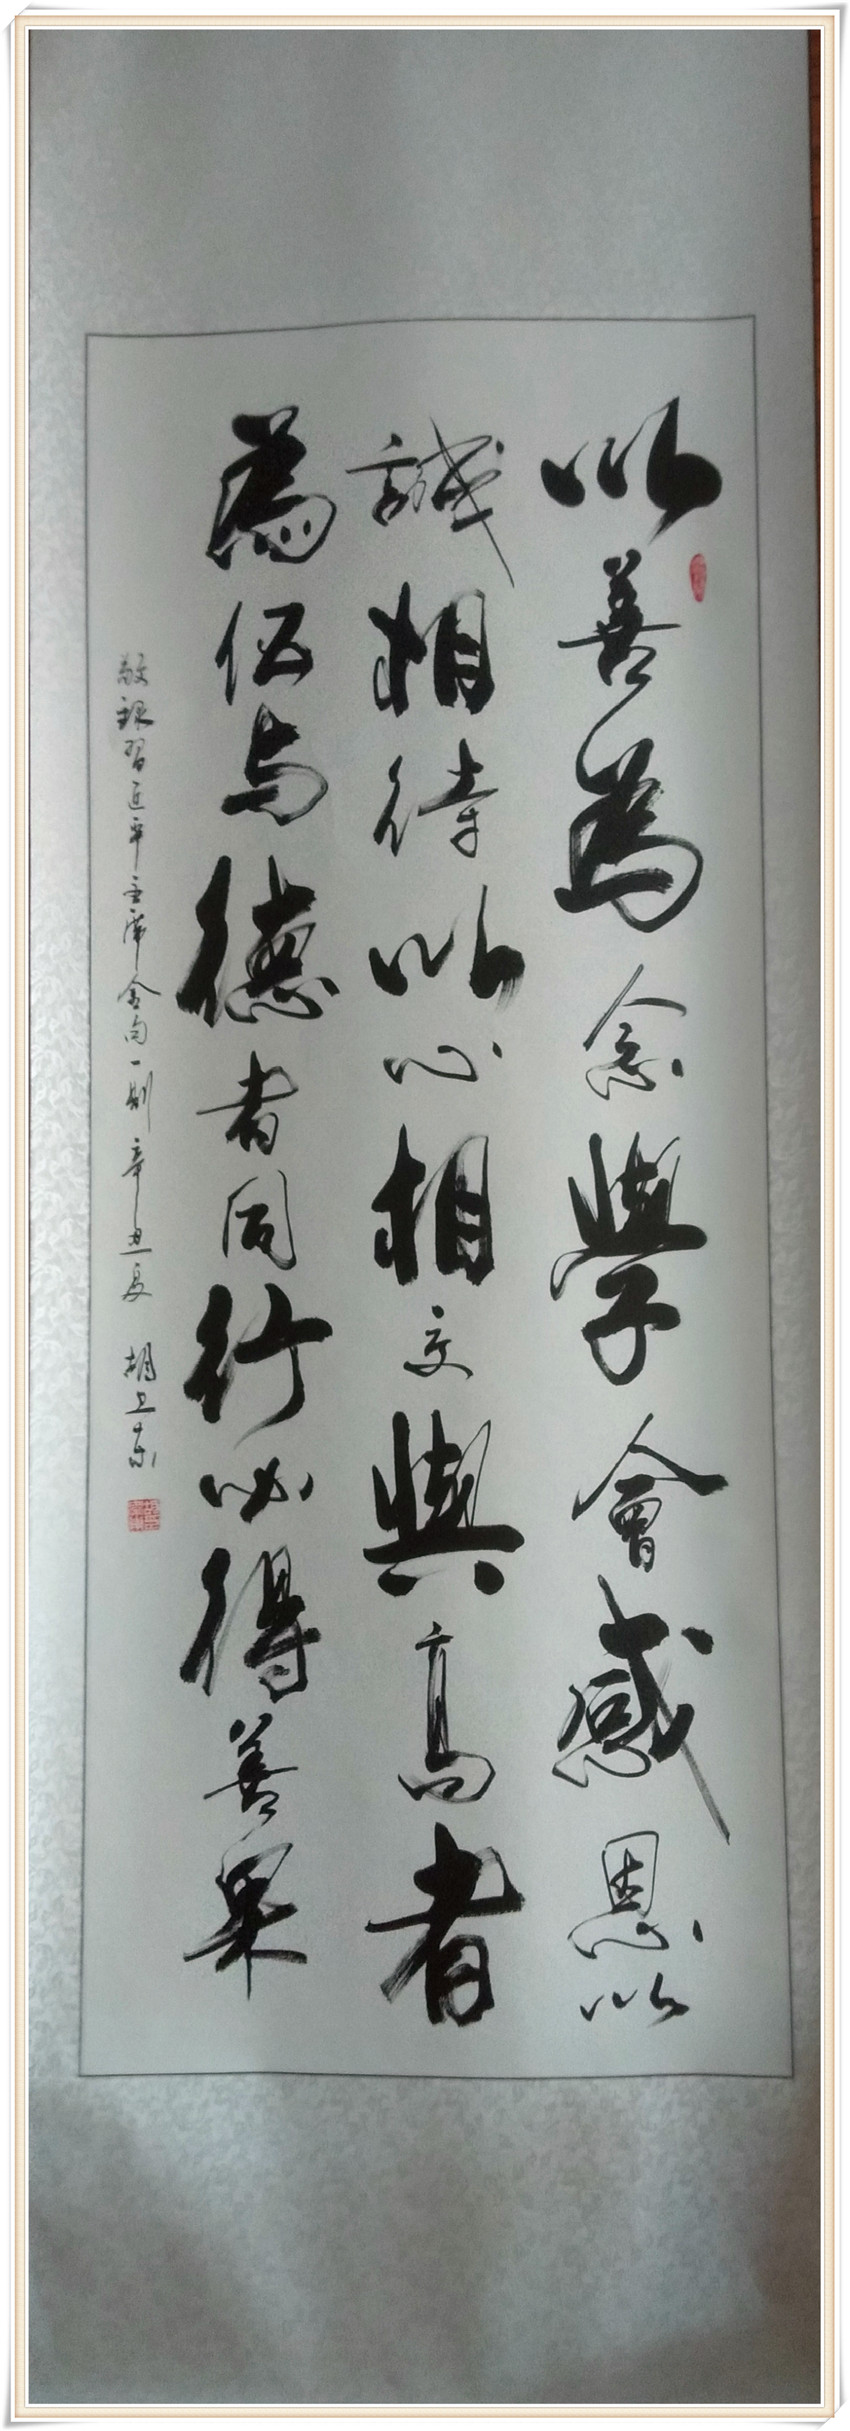 以善為念學會感恩以
誠相待以心相交與高者
為伍与德者同行必得善果
敬録習近平主席金句一則辛丑夏 胡卫东